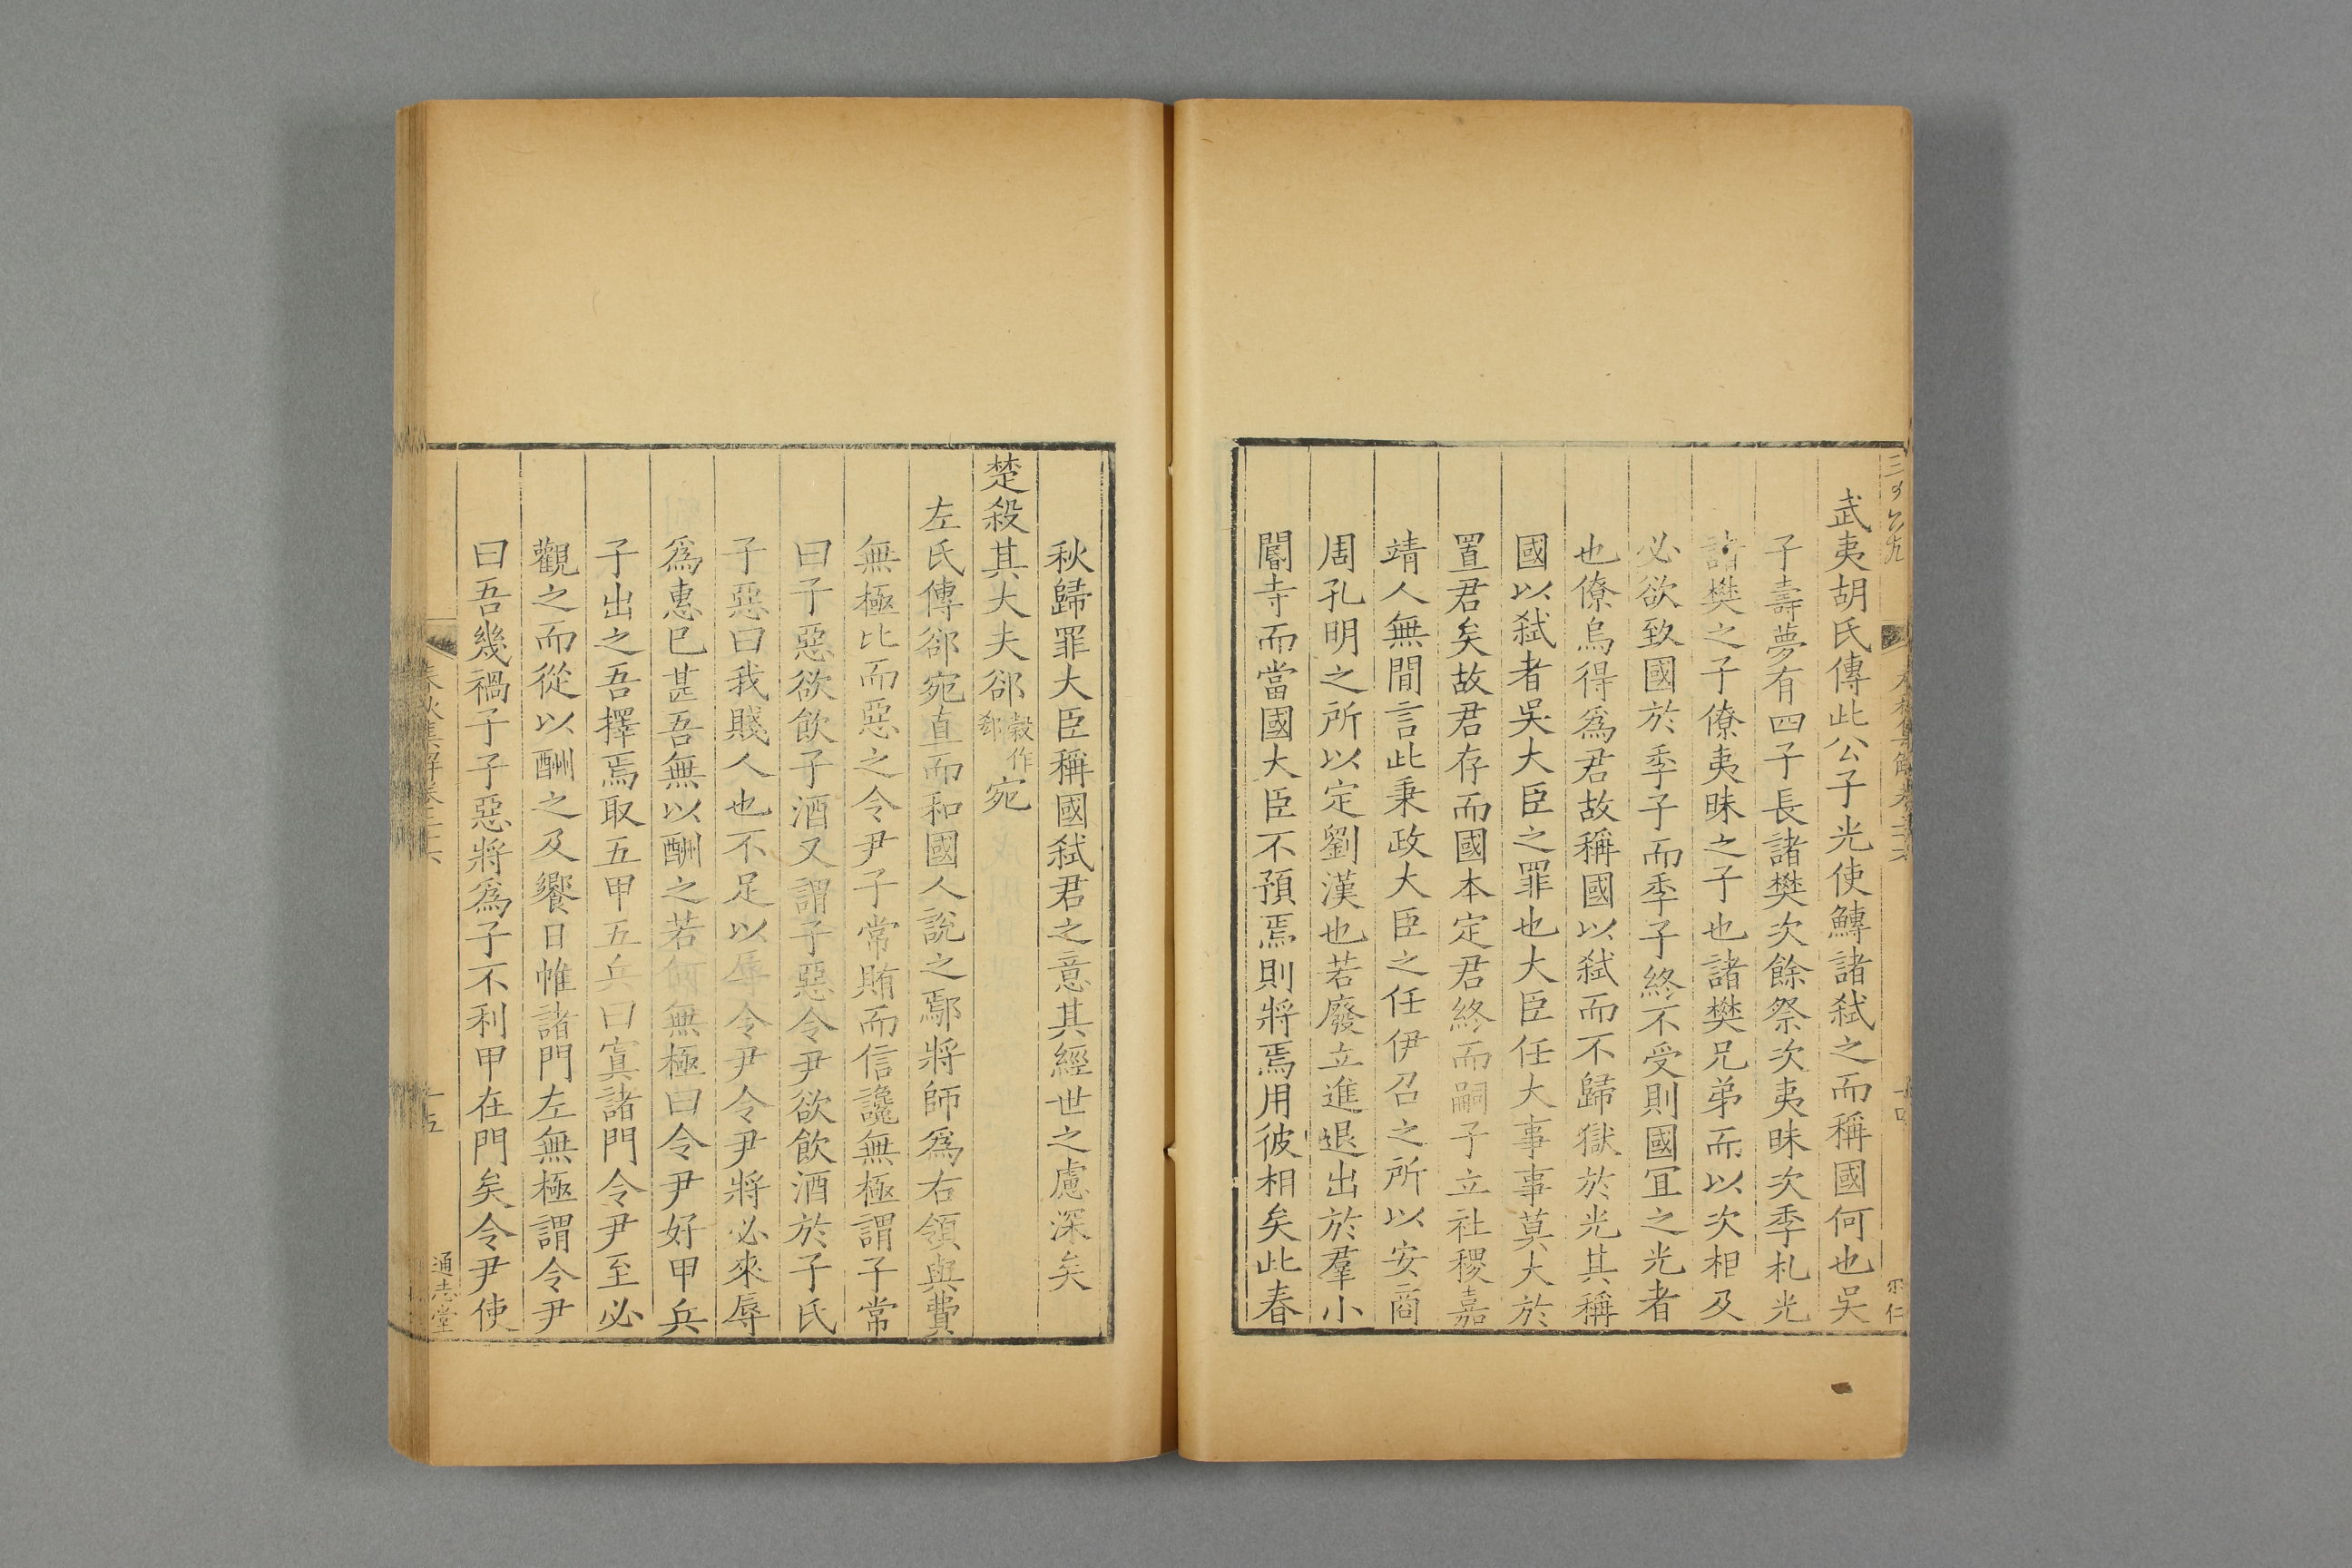 武夷胡氏傳此公子光使鱄諸弑之而稱國何也吳
子壽夢有四子長諸樊次餘祭次夷昧次季札光
諸樊之子僚夷昧之子也諸樊兄弟而以次相及
必欲致國於季子而季子終不受則國宜之光者
也僚烏得爲君故稱國以弑而不歸獄於光其稱
國以弑者吳大臣之罪也大臣任大事事莫大於
置君矣故君存而國本定君終而嗣子立社稷嘉
靖人無間言此秉政大臣之任伊召之所以安商
周孔明之所以定劉漢也若廢立進退出於羣小
閽寺而當國大臣不預焉則將焉用彼相矣此春
秋歸罪大臣稱國弑君之意其經世之慮深矣
楚殺其大夫郤穀作郄宛
左氏傳郤宛直而和國人說之鄢將師爲右領與費
無極比而惡之令尹子常賄而信讒無極謂子常
曰子惡欲飲子酒又謂子惡令尹欲飲酒於子氏
子惡曰我賤人也不足以辱令尹令尹將必來辱
爲惠已甚吾無以酬之若何無極曰令尹好甲兵
子出之吾擇焉取五甲五兵曰寘諸門令尹至必
觀之而從以酬之及饗日帷諸門左無極謂令尹
曰吾幾禍子子惡將爲子不利甲在門矣令尹使
春秋集解卷二十六
十五
通志堂